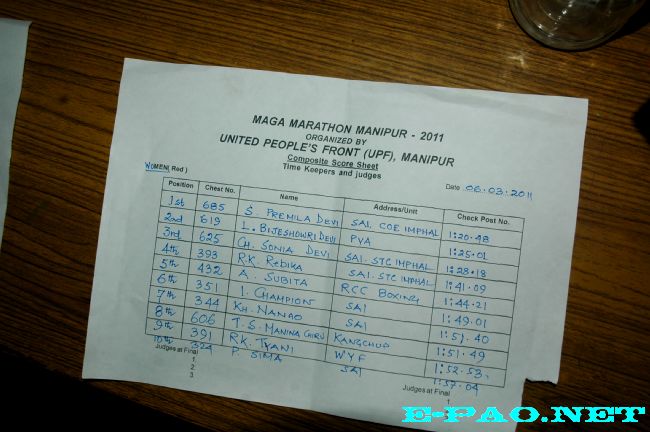 MAGA MARATHON MANIPUR - 2011
ORGANIZED BY
UNITED PEOPLE'S FRONT (UPF), MANIPUR
Composite Score Sheet
Time Keepers and judges
WOMEN (Red)
Date 06.03.2011
Position Chest No. Name Address/Unit Check Post No.
1st 685 S. PREMILA DEVI SAI, COE IMPHAL 1:20.48
2nd 619 L. BIJESHOWRI DEVI PVA 1:25.01
3rd 625 CH. SONIA DEVI SAI. STC IMPHAL 1:28.18
4th 393 R.K. REBIKA SAI. STC IMPHAL 1:41.09
5th 432 A. SUBITA RCC BOXING 1:44.21
6th 351 I. CHAMPION SAI 1:49.01
7th 344 KH. NANAO SAI 1:51.40
8th 606 T.S. MANINA CHIRU KANGCHUP 1:51.49
9th 391 RK. TYANI WYF 1:52.53
10th 324 P. SIMA SAI 1:57.04
Judges at Final
1.
2.
3.
Judges at Final
1.
E-PAO.NET